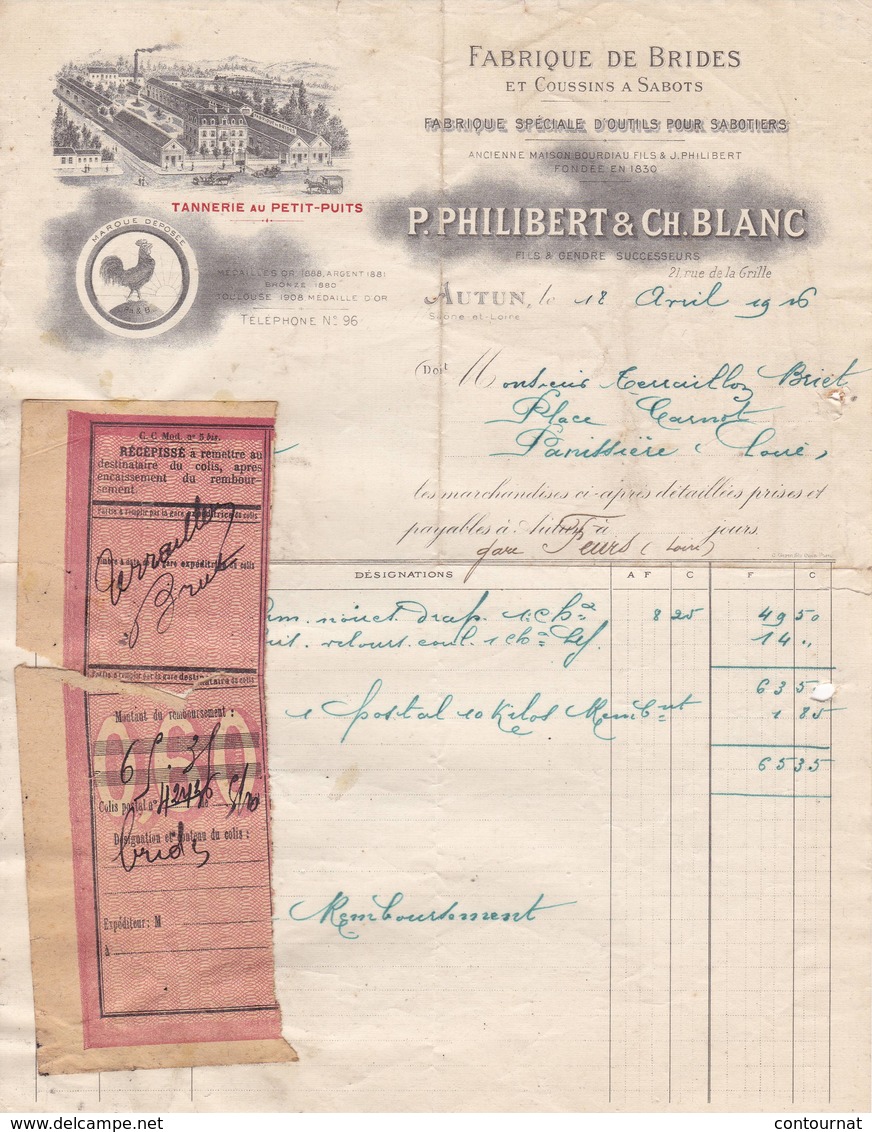 FABRIQUE DE BRIDES
ET COUSSINS A SABOTS
FABRIQUE SPÉCIALE D'OUTILS POUR SABOTIERS
ANCIENNE MAISON BOURDIAU FILS & J. PHILIBERT
FONDÉE EN 1830
P. PHILIBERT & CH. BLANC
FILS & GENDRE SUCCESSEURS
21, rue de la Grille
TANNERIE AU PETIT-PUITS
MARQUE DÉPOSÉE
MÉDAILLES OR 1888, ARGENT 1881
BRONZE 1880
TOULOUSE 1908 MÉDAILLE D'OR
TÉLÉPHONE No 96
AUTUN, le 18 Avril 1916
Saône-et-Loire
Doit Monsieur Terraillon Briet
Place Carnot
Panissière (Loire)
les marchandises ci-après détaillées prises et
payables à Autun à jours.
gare Feurs (Loire)
DÉSIGNATIONS A F C F C
drap. 8 25 49 50
velours 14 "
63 5
1 postal 10 Kilos Rembnt 1 85
65 35
Remboursement
C. C Mod. n° 5 bis.
RÉCÉPISSÉ à remettre au
destinataire du colis, après
encaissement du rembour-
sement
Partie à remplir par la gare expéditrice du colis
Timbre à date de la gare expéditrice du colis
Terraillon
Briet
Partie à remplir par la gare destinataire du colis
Montant du remboursement :
0,60
65.35
Colis postal n° 42436 5/10
Désignation et contenu du colis :
brides
Expéditeur : M
à
contournat